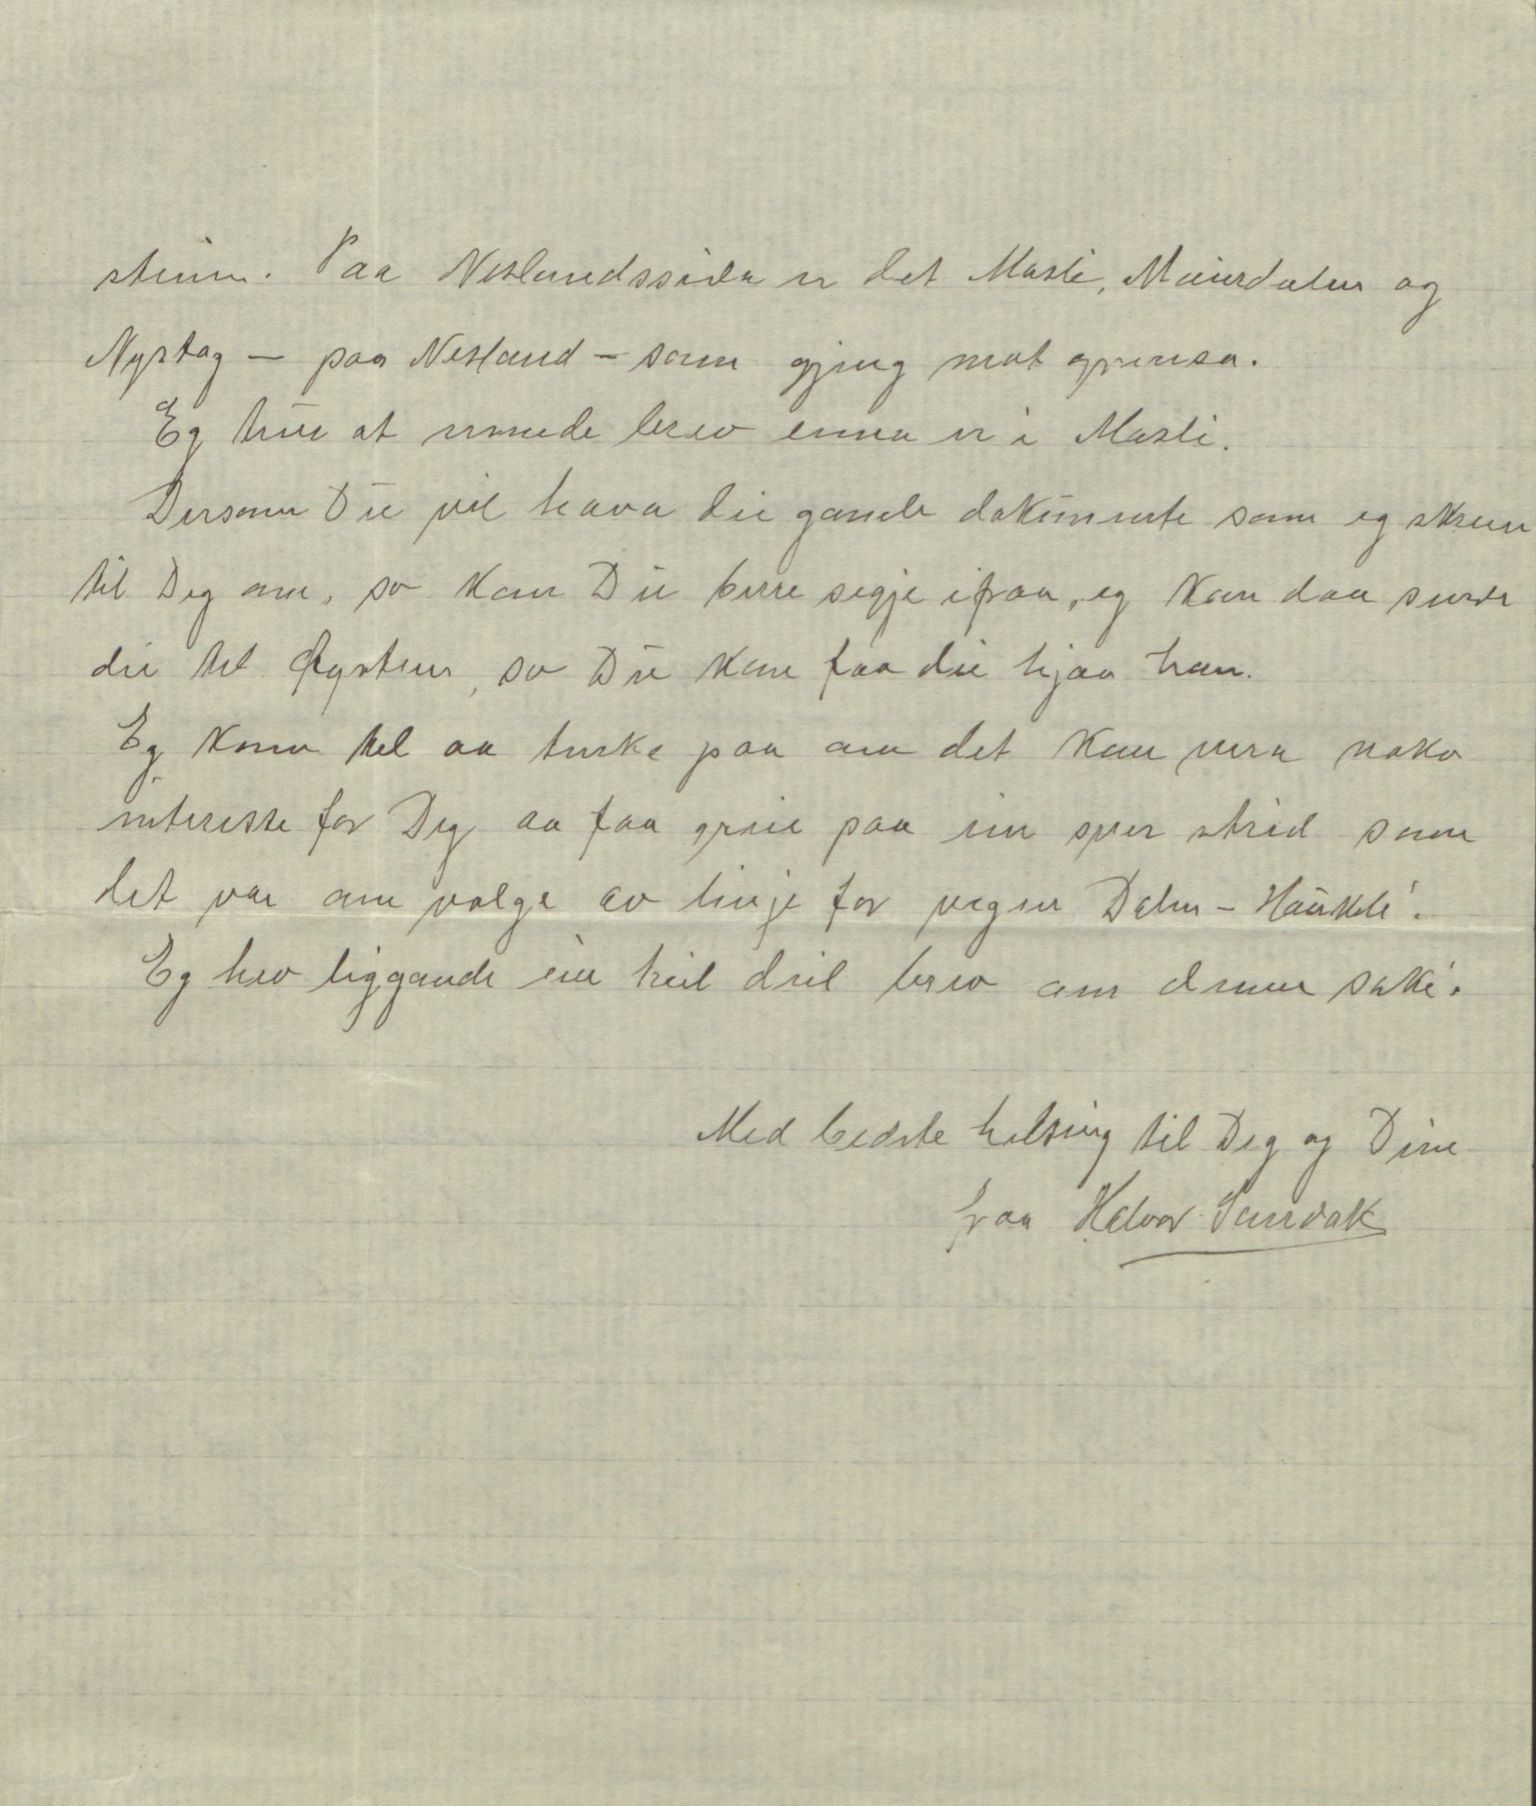 steinn. Paa Neslandssida er det Masli, Maurdalen og
Nystog — paa Nesland — som gjeng mot grensa.
Eg trur at nemde brev enna er i Masli.
Dersom Du vil hava dei gamle dokumente som eg skreiv
til Deg om, so kan Du berre segje ifraa, eg kan daa sende
dei til Øystein, so Du kan faa dei hjaa han.
Eg kom til aa tenke paa om det kan vera noko
interesse for Deg aa faa greie paa ein svær strid som
det var om valge av linje for vegen Dalen – Haukeli.
Eg hev liggande ein heil deil brev om denne saki.
Med bedste helsing til Deg og Dine
fraa Halvor Sandok